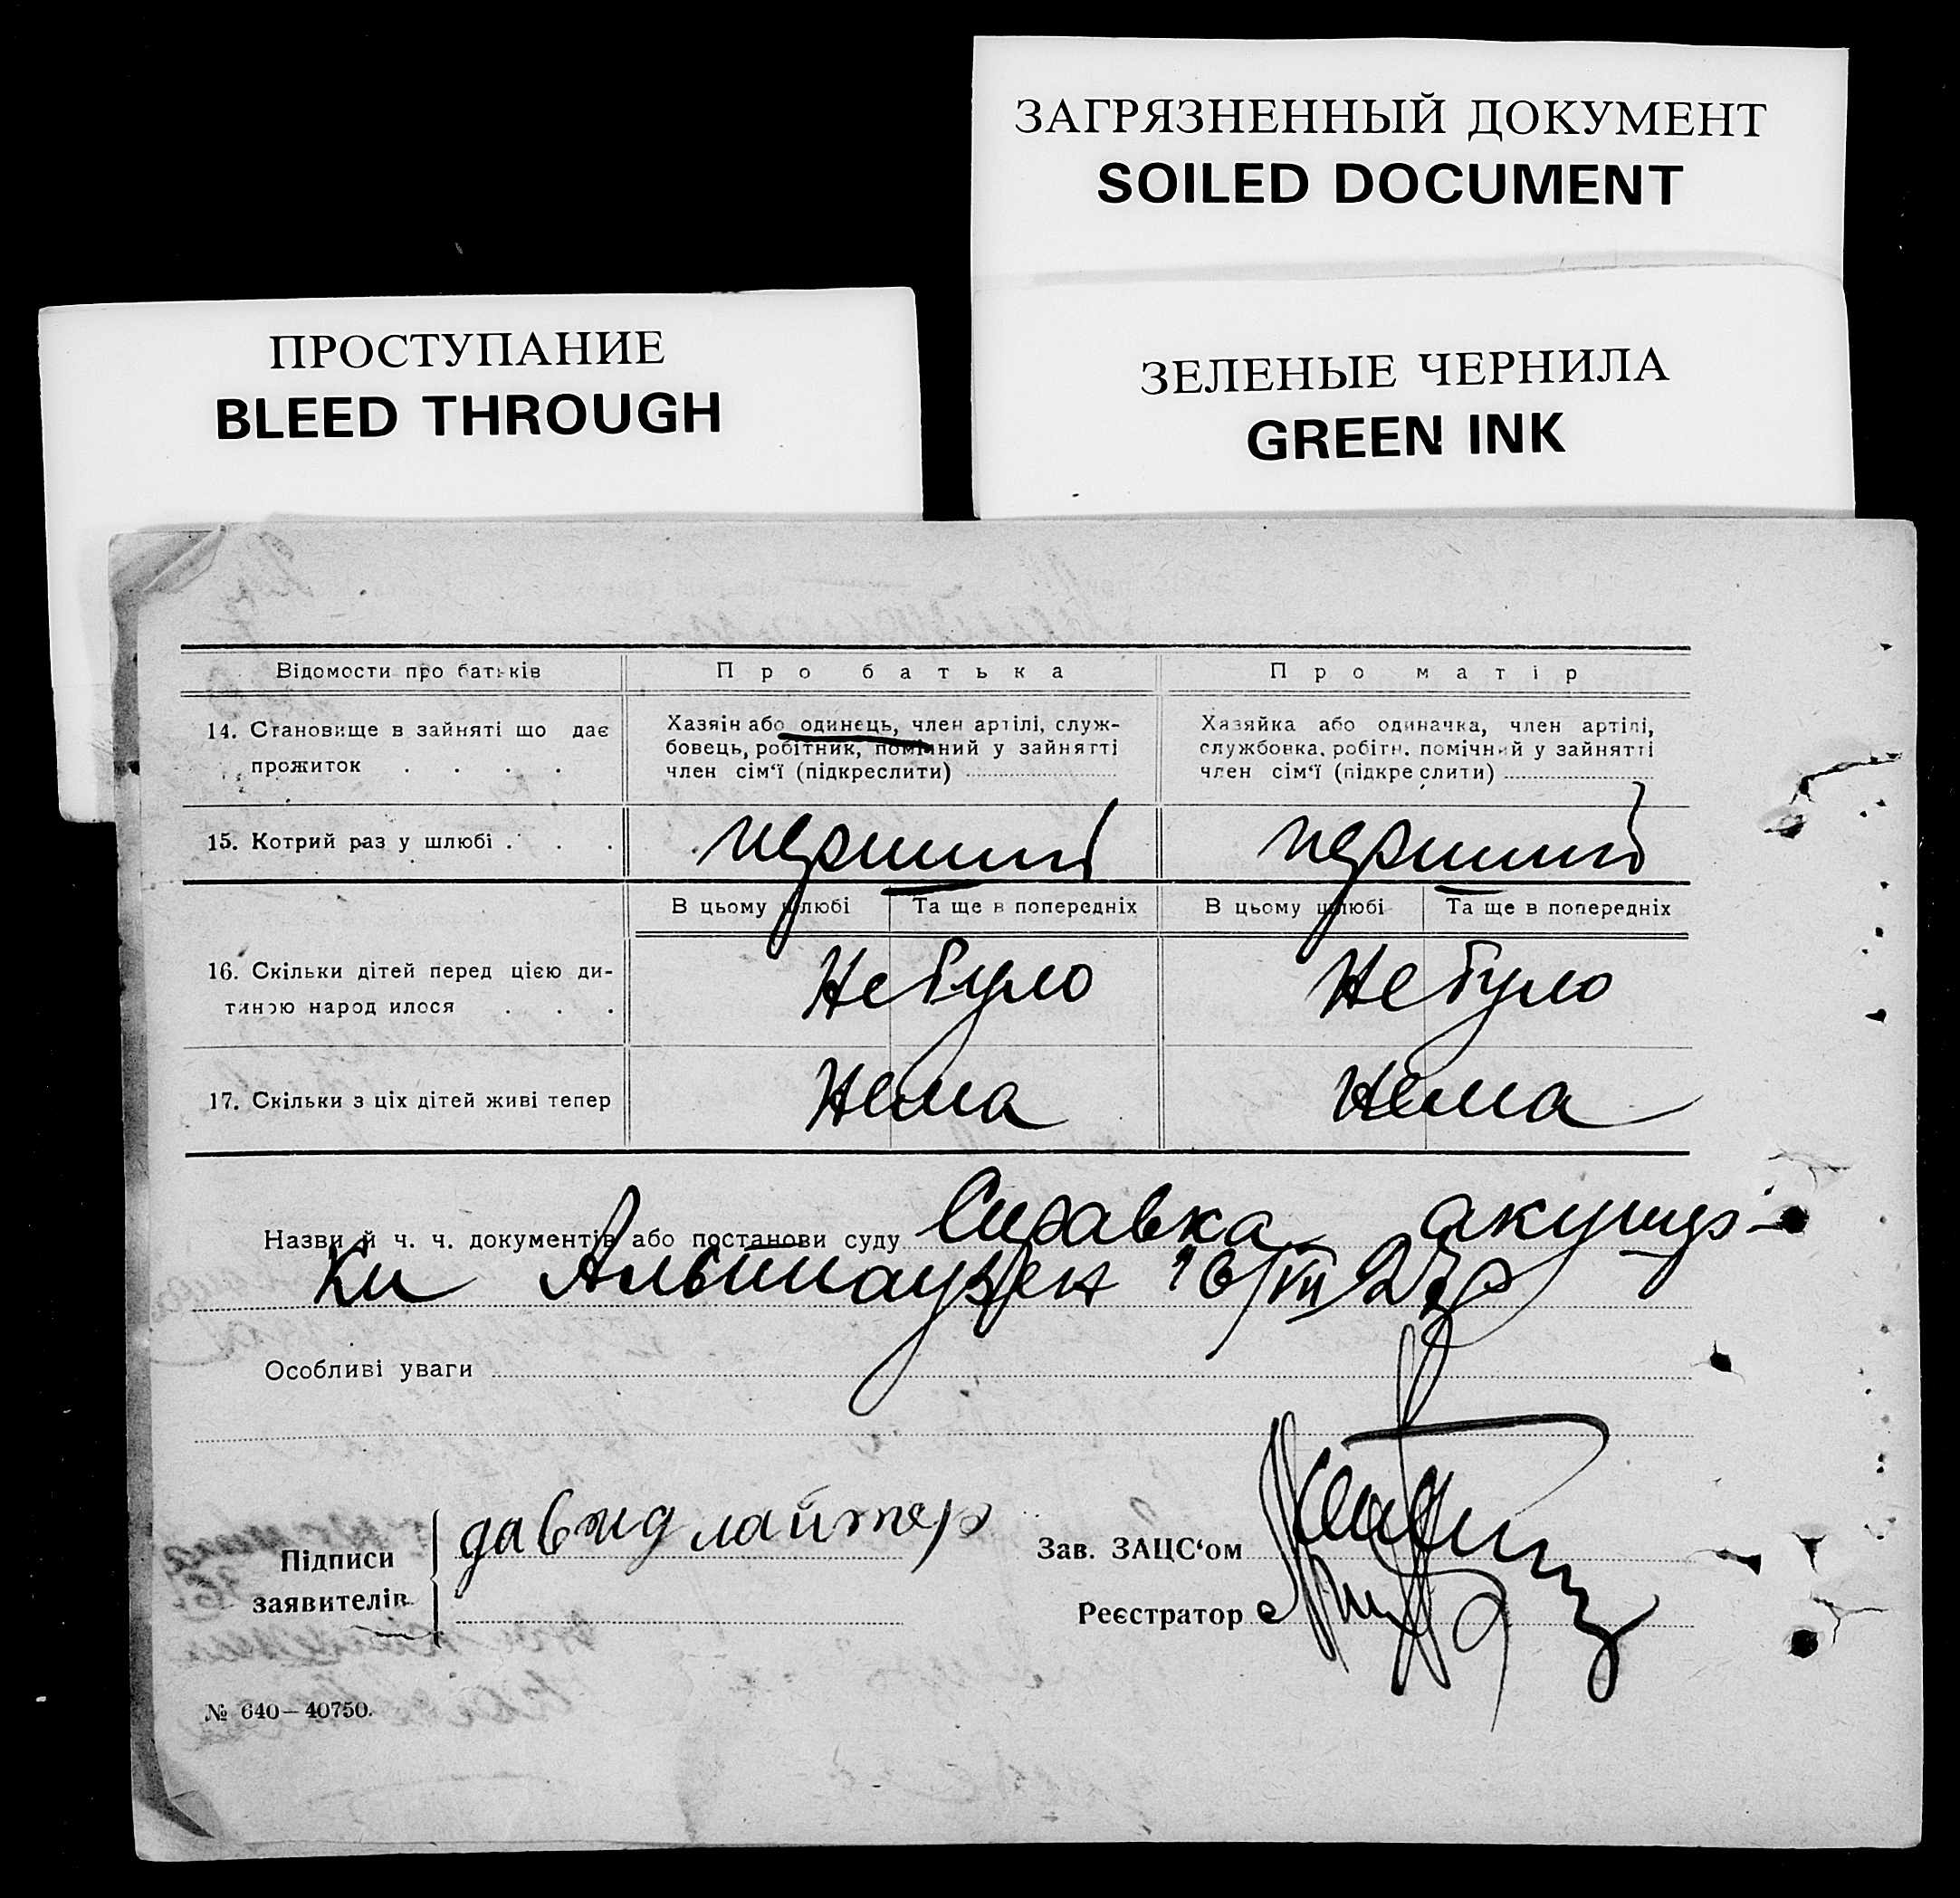 ЗАГРЯЗНЕННЫЙ ДОКУМЕНТ
SOILED DOCUMENT
ПРОСТУПАНИЕ
BLEED THROUGH
ЗЕЛЕНЫЕ ЧЕРНИЛА
GREEN INK
Відомости про батьків
Про батька
Про матір
14. Становище в зайняті що дає
прожиток . . . .
Хазяїн або одинець, член артілі, служ-
бовець, робітник, помічний у зайнятті
член сім‘ї (підкреслити)
Хазяйка або одиначка, член артілі,
службовка, робітн. помічний у зайнятті
член сім‘ї (підкреслити)
15. Котрий раз у шлюбі . . .
перший
перший
В цьому шлюбі
Та ще в попередніх
В цьому шлюбі
Та ще в попередніх
16. Скільки дітей перед цією ди-
тиною народилося . . .
Не було
Не було
17. Скільки з ціх дітей живі тепер
Нема
Нема
Назви й ч. ч. документів або постанови суду Справка акушер-
ки 16/VII 27р
Особливі уваги
Підписи
заявителів
давид лайтер
Зав. ЗАЦС‘ом
Реєстратор
№ 640—40750.